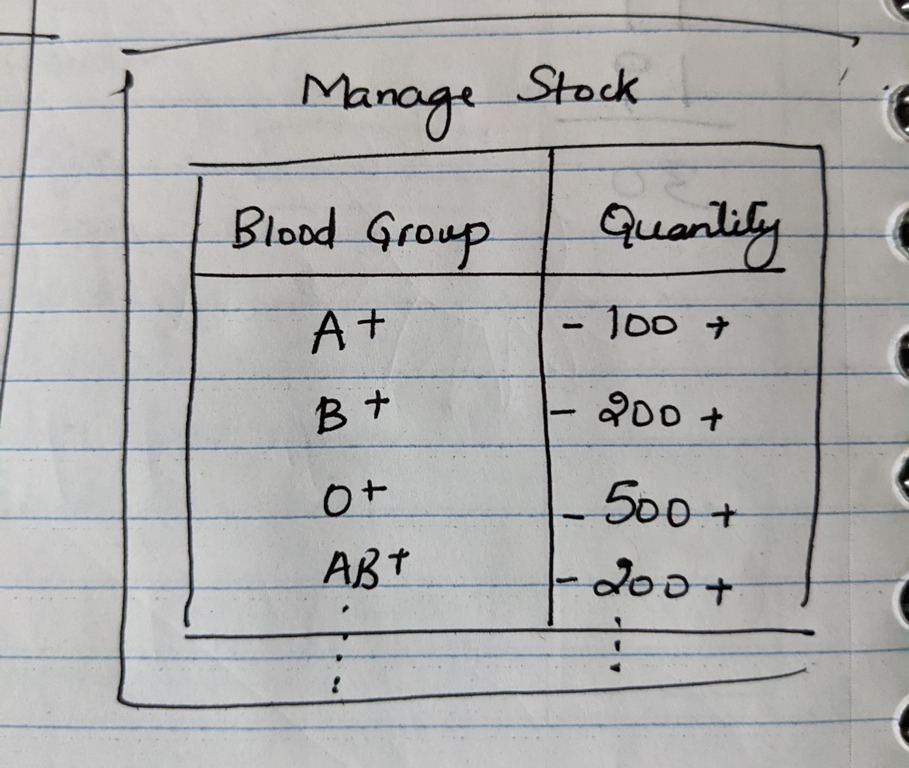 Manage Stock
Blood Group Quantity
A+ - 100 +
B+ - 200 +
O+ - 500 +
AB+ - 200 +